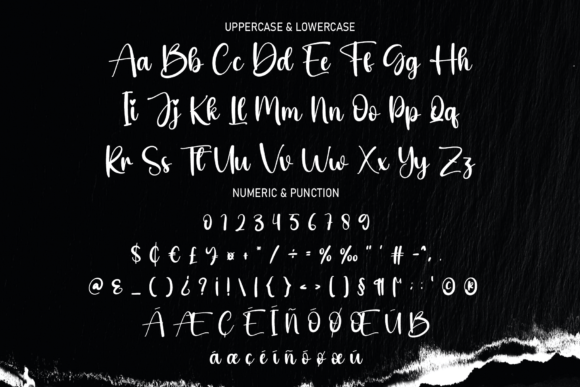 UPPERCASE & LOWERCASE
Aa Bb Cc Dd Ee Ff Gg Hh
Ii Jj Kk Ll Mm Nn Oo Pp Qq
Rr Ss Tt Uu Vv Ww Xx Yy Zz
NUMERIC & PUNCTION
0 1 2 3 4 5 6 7 8 9
$ ₵ € £ ¥ ¤ + " / ÷ = % ‰ " ' # - ^ , .
@ & _ ( ) ¿ ? ¡ ! \ | { } < > [ ] § ¶ : ; ' © ®
Á Æ Ç É Í Ñ Ö Ø Œ Ú ß
á æ ç é í ñ ô ø œ ú